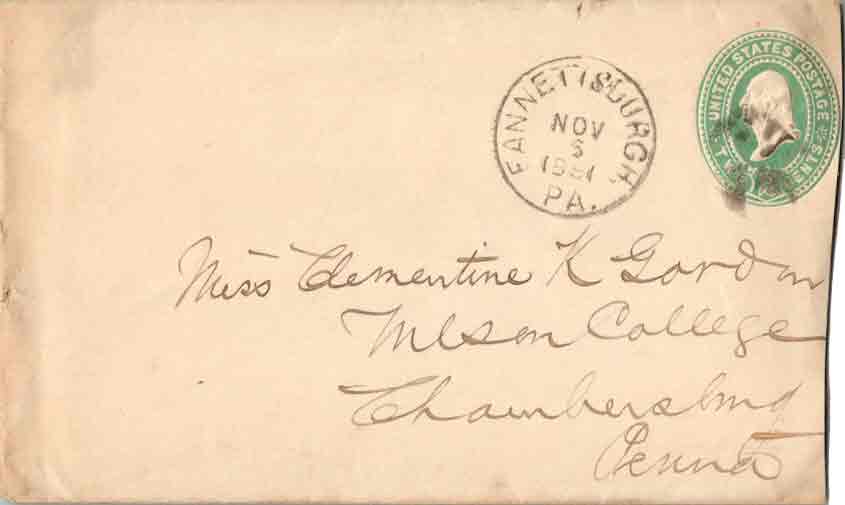 UNITED STATES POSTAGE
CENTS
FANNETTSBURGH,
NOV
PA.
Miss Clementine K Gordon
Wilson College
Chambersburg
Penna